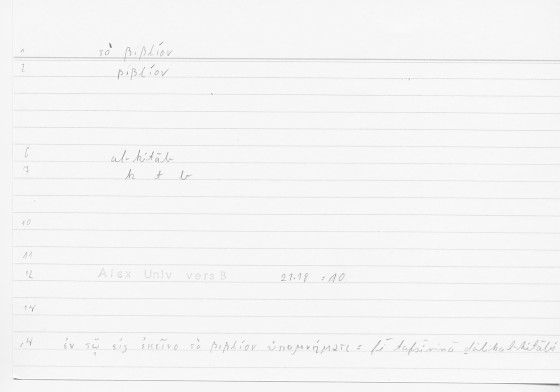 τὸ βιβλίον
2 βιβλίον
6 al-kitāb
7 k t b
10
11
12 Alex Univ vers B 21.18 = 10
14 ἐν τῷ εἰς ἐκεῖνο τὸ βιβλίον ὑπομνήματι = fī tafsīrinā